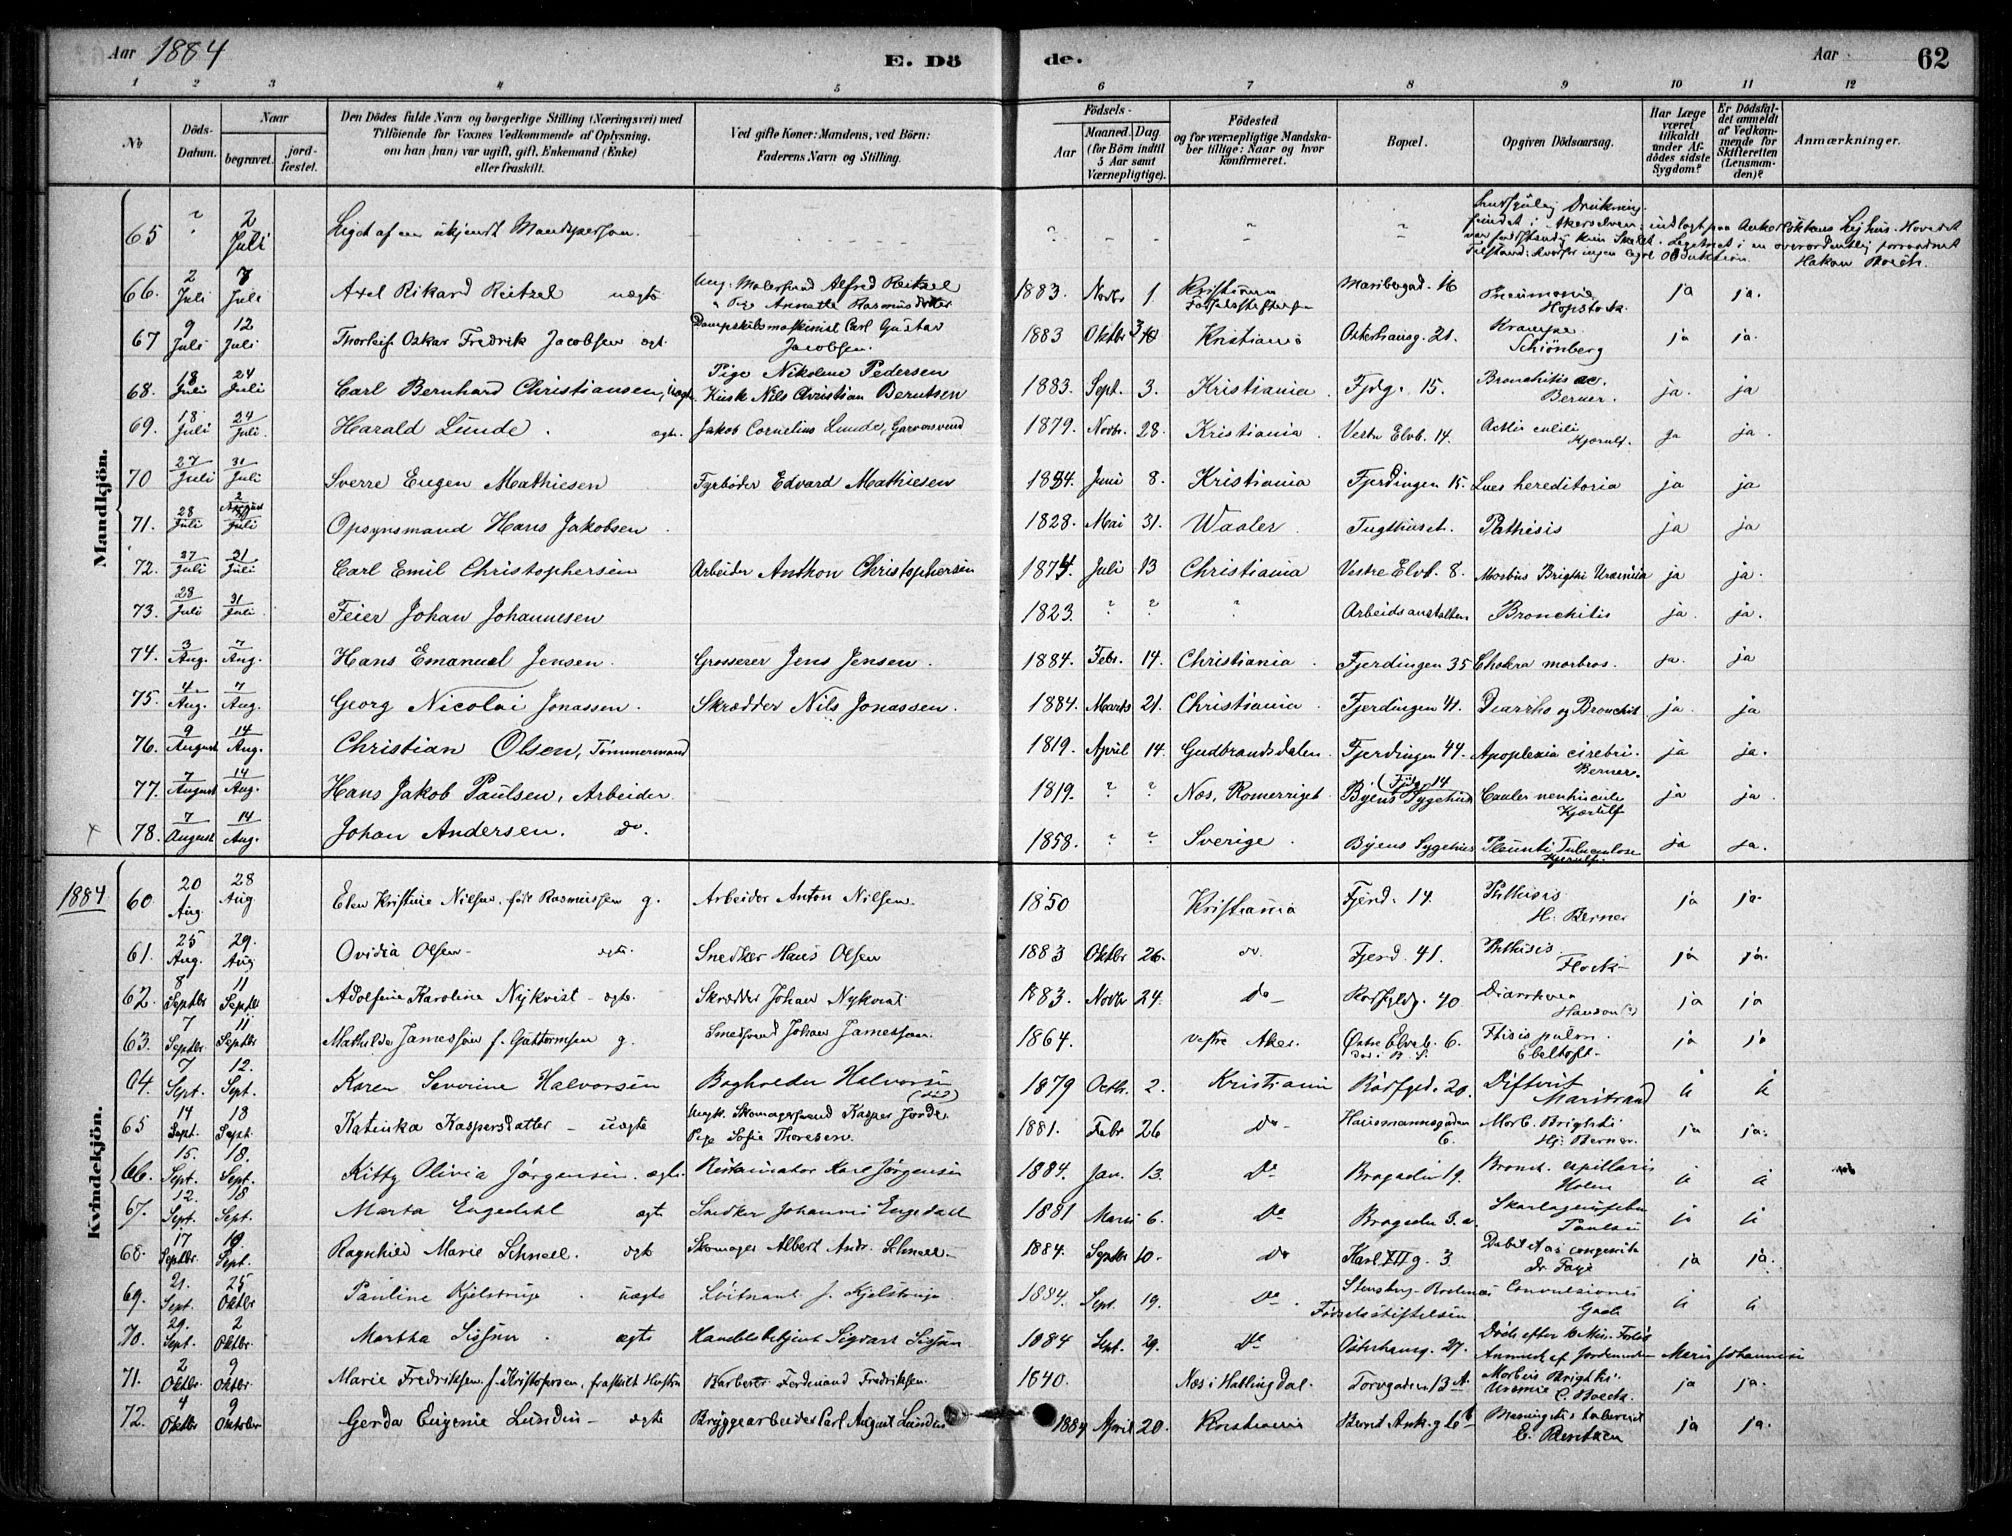 Aar 1884 E. Döde. Aar 62
1 2 3 4 5 6 7 8 9 10 11 12
№ Döds-Datum. Naar begravet. jordfæstet. Den Dödes fulde Navn og borgerlige Stilling (Næringsvei) med Tilföiende for Voxnes Vedkommende af Oplysning, om han (hun) var ugift, gift, Enkemand (Enke) eller fraskilt. Ved gifte Koner: Mandens, ved Börn: Faderens Navn og Stilling. Födsels- Aar Maaned. Dag. (for Börn indtil 5 Aar samt Værnepligtige). Födested og for værnepligtige Mandskaber tillige: Naar og hvor konfirmeret. Bopæl. Opgiven Dödsaarsag. Har Læge været tilkaldt under Afdödes sidste Sygdom? Er Dödsfaldet anmeldt af Vedkommende for Skifteretten (Lensmanden)? Anmærkninger.
Mandkjön.
65 " 2 Juli Liget af en ukjendt Mandsperson. Drukning. fundet i Akerselven
66. 2 Juli 7 Juli Axel Rikard Reitzel uægte Ung. Malersvend Alfred Reitzel Pige Annette Rasmusdatter 1883. Novbr 1 Kristiania Fødselsstiftelsen Maribergad. 16 Pneumonie Hopstock ja ja.
67 9 Juli 12 Juli Thorleif Oskar Fredrik Jacobsen ægt. Dampskibsmaskinist Carl Gustav Jacobsen. 1883 Oktbr 3 Kristiania Osterhausg. 21. Krampe Schiønberg ja ja.
68. 18 Juli 24 Juli Carl Bernhard Christiansen, uægte Pige Nikoline Pedersen Kusk Nils Christian Berntsen 1883. Sept. 3. Kristiania Fjdg. 15. Bronchitis ac. Berner. ja. ja
69. 18 Juli 24 Juli Harald Lunde. ægte. Jakob Cornelius Lunde, Garversvend 1879. Novbr. 28. Kristiania. Vestre Elvb. 14. Hjerulf. ja ja.
70 27 Juli 31 Juli Sverre Eugen Mathiesen Fyrbøder Edvard Mathiesen 1884. Juni 8. Kristiania Fjerdingen 15. Lues hereditoria ja ja
71. 28 Juli 2 August Juli Opsynsmand Hans Jakobsen 1828. Mai 31. Waaler. Tugthuset. Pathisis ja ja
72. 27 Juli 31 Juli Carl Emil Christophersen Arbeider Anthon Christophersen 1874. Juli 13 Christiania Vestre Elvb. 8. Morbus Brigthi Uræmia ja ja.
73. 28 Juli 31 Juli. Feier Johan Johannesen 1823. " " " Arbeidsanstalten Bronchitis ja. ja.
74. 3 Aug. 7 Aug. Hans Emanuel Jensen. Grosserer Jens Jensen. 1884. Febr. 14. Christiania. Fjerdingen 35 Cholera morbros. ja. ja
75. 4 Aug. 7 Aug. Georg Nicolai Jonassen. Skrædder Nils Jonassen. 1884. Marts 21. Christiania. Fjerdingen 41. Diarrho og Bronchit ja. ja
76. 9 August 14 Aug. Christian Olsen, Tømmermand 1819. April 14. Gudbrandsdalen. Fjerdingen 44. Apoplexia cirebri. Berner. ja ja.
77. 7 August 14 Aug. Hans Jakob Paulsen, Arbeider. 1819. " " Nes, Romerriget Byens Sygehus (Fjdg. 14 Hjerulf ja ja.
78. 7 August 14 Aug. Johan Andersen. do. 1858. " " Sverige. Byens Sygehus Hjerulf. ja ja.
Kvindekjön.
1884 60 20 Aug. 28 Aug Elen Kristine Nilsen, født Rasmussen g. Arbeider Anton Nilsen. 1850 Kristiania Fjerd. 14. Phthisis H. Berner ja ja.
61. 25 Aug. 29. Aug Ovidia Olsen ægte. Snedker Hans Olsen 1883 Oktbr 26. do. Fjerd. 41. Phthisis. ja ja.
62. 8 Septbr 11 Septbr Adolfine Karoline Nykvist ægte. Skrædder Johan Nykvist 1883. Novbr 24. do Diarrhoea Hanson(?) ja ja
63. 7 Septbr. 11 Septbr Mathilde Jamessøn f. Guttormsen g. Smedsvend Johan Jamessøn. 1864. Vestre Aker. Østre Elveb. 6. Ftisis pulm. Ebeltoft. ja ja
64. 7 Sept. 12. Sept. Karen Severine Halvorsen Bogholder Halvorsen 1879 Octb. 2. Kristiania 20. Difterit ja ja
65 14 Sept. 18 Sept. Katinka Kaspersdatter uægte Ungk. Skomagersvend Kasper Pige Sofie Thoresen. 1881. Febr 26 do Hausmannsgaden 6. Morb. Brightii Hj. Berner. ja ja.
66. 15. Sept. 18. Sept. Kitty Olivia Jørgensen. ægte. Karl Jørgensen 1884. Jan. 13. Do Brogaden 19. Bronch. capillaris ja ja
67. 12. Sept. 18 Sept. Marta Engedahl ægte Snedker Johannes Engedahl 1881 6. Do Brogaden 3. a. Paulsen ja ja
68. 17 Septbr. 19 Sept. Ragnhild Marie Schnell. ægte Skomager Albert Andr. Schnell. 1884. Septbr 10. Do Karl XII g. 3. Debilitas congenita Dr. Faye ja ja.
69. 21. Sept. 25 Oktbr Pauline Kjelstrup. uægte 1884. Sept. 19. Do. Fødselsstiftelsen Convulsiones ja ja
70. 29. Sept. 2 Oktbr. Martha ægte Handelsbetjent Sigvart 1884 Sept. 29. Do Osterhausg. 27. Død efter 10 Min. Forløb Anmeldt af Jordemoder
71. 2 Oktbr. 9 Oktbr. Marie Fredriksen f. Kristofersen, fraskilt Hustru Barberer Ferdinand Fredriksen. 1840. Næs i Hallingdal. Torvgaden 13 A. Morbus Brightii. Uremie C. Boeck. ja ja.
72. 4 Oktbr 9 Oktober Gerda Eugenie Lundin ægte Bryggearbeider Carl August Lundin 1884 April 20. Kristiania Bernt Ank. g 6 E. Bentzen ja ja.